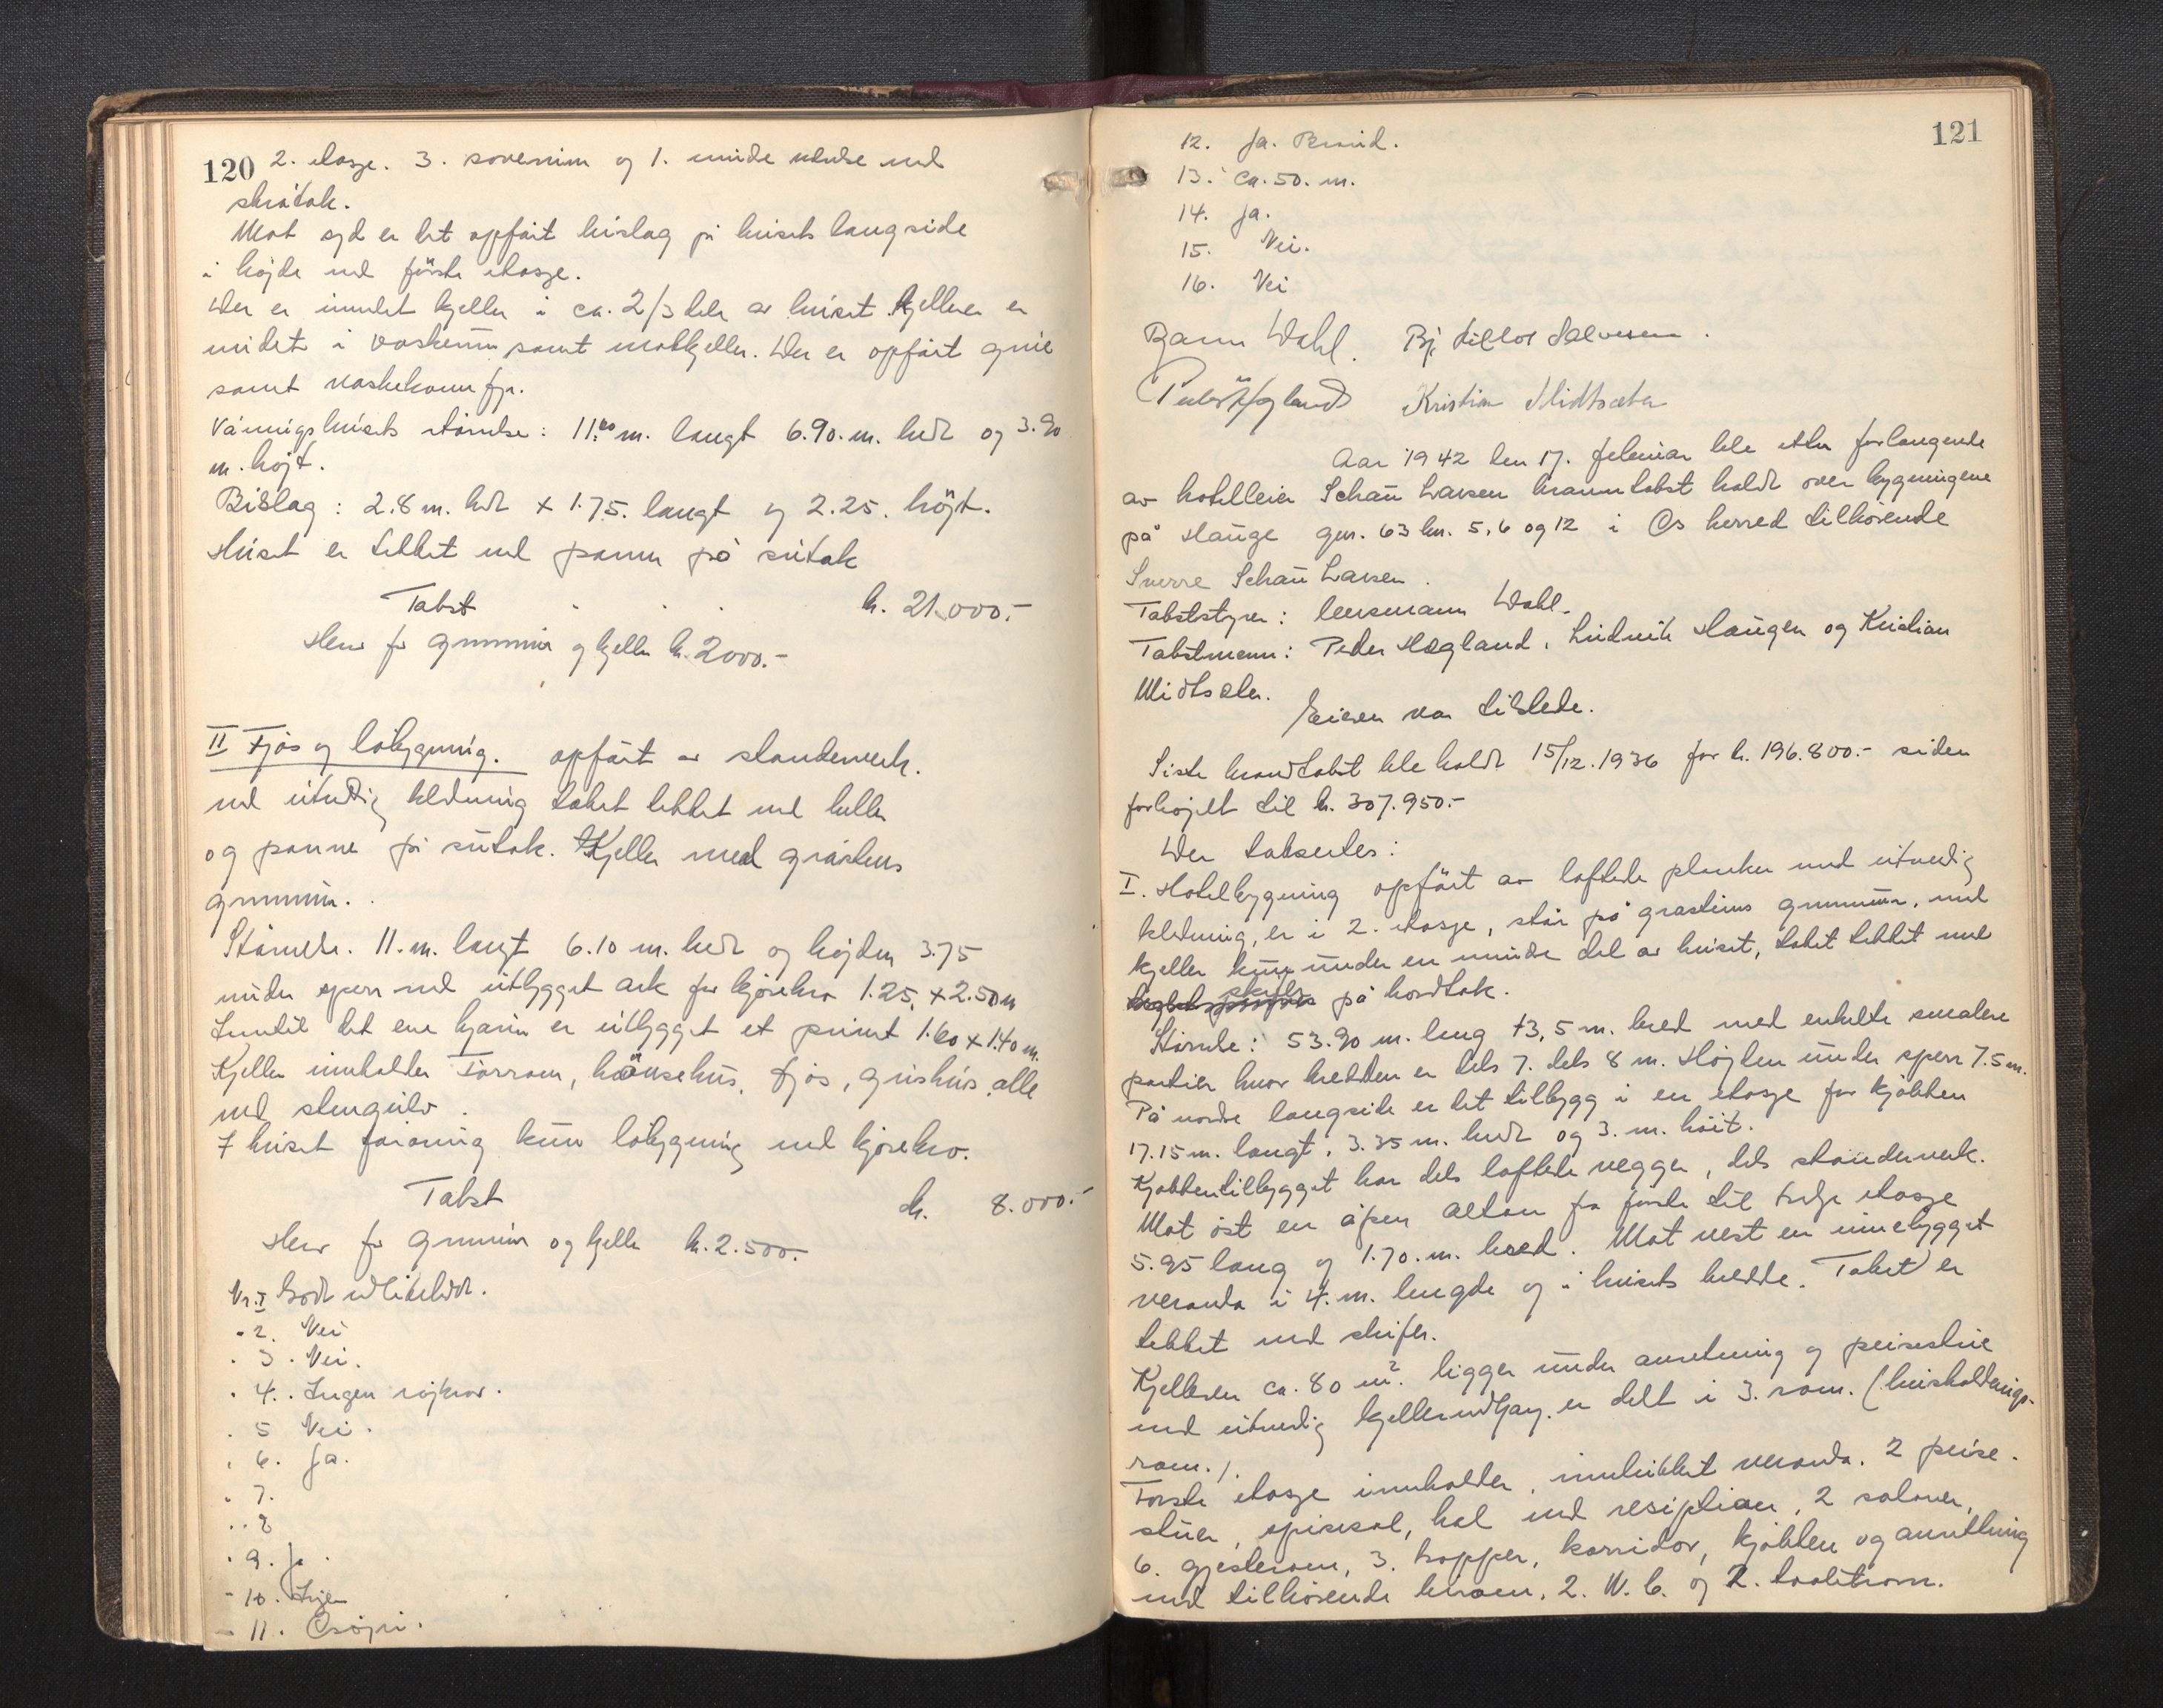 120 2. etasje. 3. soverum og 1. mindre med
skråtak.
Mot syd er det opført bislag på husets langside
i højde med første etasje.
Der er innredet kjeller i ca. 2/3 dele av huset. Kjelleren er
inndelt i vaskerum samt matkjeller. Der er opført grue
samt vaskekomfyr.
Våningshusets størrelse: 11.00 m. langt 6.90. m. bredt og 3.90
m. højt.
Bislag: 2.8 m. bredt x 1.75. langt og 2.25. höjt.
Huset er tekket med panne på sutak
Takst kr. 21.000.-
Herav for grunnmur og kjeller kr. 2000.-
II Fjøs og løbygning. opført av standerverk.
med utvendig kledning taket tekket med heller
og panne på sutak. Kjeller med gråstens
grunnmur.
Størrelse. 11. m. langt 6.10 m. bredt og højden 3.75
under sperr med utbygget ark for kjørebro 1.25 x 2.50 m
Inntil det ene hjørne er utbygget et 1.60 x 1.40 m.
Kjeller inneholder Torrom, hønsehus, fjøs, grishus alle
med stengulv.
I huset forøvrig kun løbygning med kjørebro.
Takst kr. 8.000.-
Herav for grunnmur og kjeller kr. 2.500.-
Nr. I Godt vedlikeholdt.
" 2. Nei
" 3. Nei.
" 4. Ingen
" 5 Nei.
" 6. Ja.
" 7.
" 8
" 9. Ja.
" 10. Ingen
" 11.
121
12. Ja. Brønd.
13. Ca. 50. m.
14. Ja.
15. Nei.
16. Nei
Wahl. Bj. Salvesen.
Peder Høgland Kristian Midtsæter
Aar 1942 den 17. februar ble etter forlangende
av hotelleier Schau Larsen branntakst holdt over bygningene
på Hauge gnr. 63 bnr. 5, 6 og 12 i Os herred tilhørende
Sverre Schau Larsen.
Takststyrer: lensmann Wahl.
Takstmenn: Peder Høgland, Ludvik Haugen og Kristian
Midtsæter.
Eieren var tilstede.
Siste brandtakst ble holdt 15/12. 1936 for kr. 196.800.- siden
forhøjet til kr. 307.950.-
Der takseredes:
I. Hotelbygning opført av laftede planker med utvendig
kledning, er i 2. etasje, står på gråstens grunnmur, med
kjeller kun under en mindre del av huset, taket tekket med
skifer på bordtak.
Størrelse: 53.90 m. lang 13,5 m. bred med enkelte smalere
partier hvor bredden er dels 7. dels 8 m. Højden under sperr 7.5 m.
På nordre langside er det tilbygg i en etasje for kjøkken
17.15 m. langt, 3.35 m. bredt og 3. m. høit.
Kjøkkentilbygget har dels laftede vegger, dels standerverk.
Mot øst en åpen altan fra første til tredje etasje
5.95 lang og 1.70. m. bred. Mot vest en innebygget
veranda i 4. m. lengde og i husets bredde. Taket er
tekket med skifer.
Kjelleren ca. 80 m². ligger under anretning og peisestue
med utvendig kjellernedgang. er delt i 3. rom. (husholdnings-
rom.).
Første etasje inneholder, innebikket veranda. 2 peise-
stuer, spisesal, hal med resiption, 2 saloner,
6. gjesterom, 3. trapper, korridor, kjøkken og anretning
med tilhørende birom, 2. W. C. og 2. toalettrom.